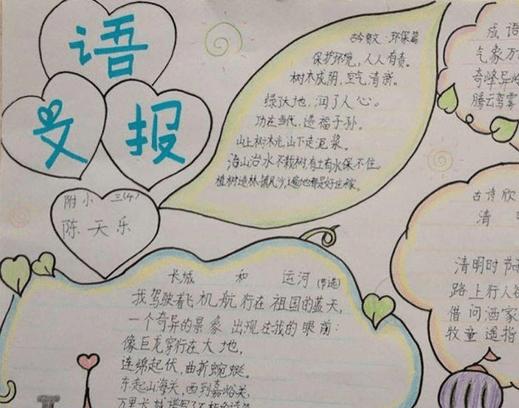 语
文 报
附小 三(4)
陈天乐
古今贤文·环保篇
保护环境,人人有责。
树木成荫,空气清新。
绿荫大地,润了人心。
功在当代,造福子孙。
山上树木光,山下走泥浆。
治山治水不栽树,有土有水保不住。
植树造林,
长城 和 运河(节选)
我驾驶着飞机航行在祖国的蓝天,
一个奇异的景象出现在我的眼前:
像巨龙穿行在大地,
连绵起伏,曲折蜿蜒。
东起山海关,西到嘉峪关,
万里长城
成语
气象万
奇峰异
腾云驾雾
古诗欣
清 明
清明时节
路上行人
借问酒家
牧童遥指